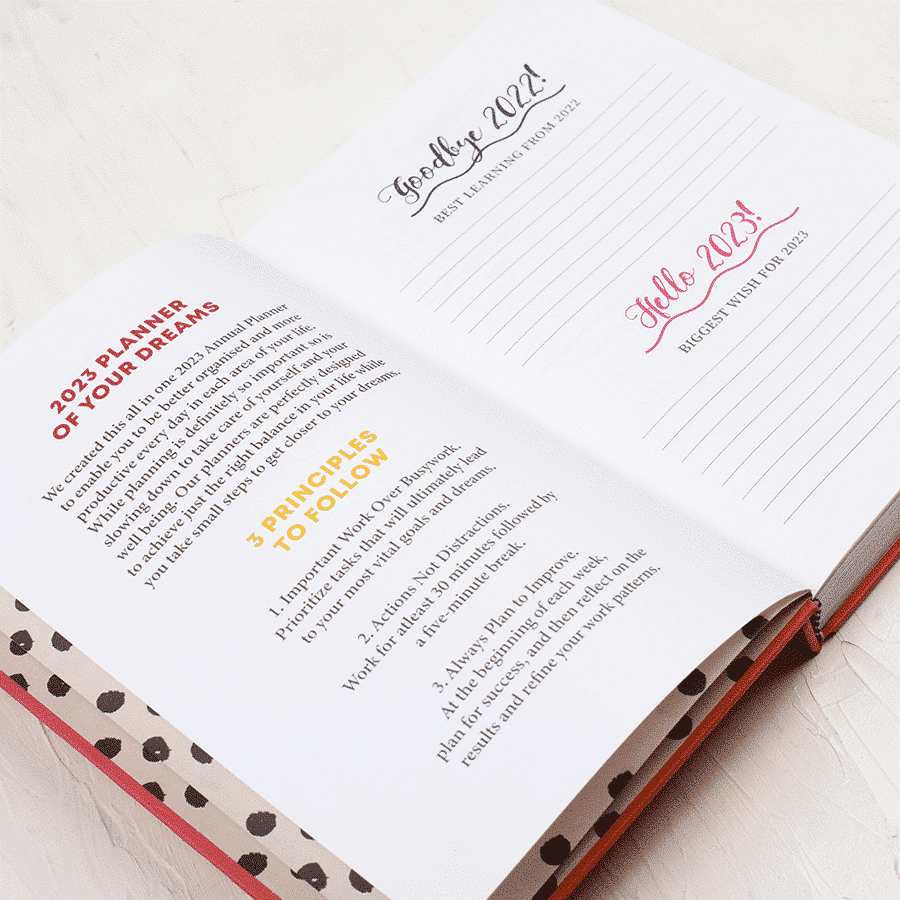 2023 PLANNER
OF YOUR DREAMS
We created this all in one 2023 Annual Planner
to enable you to be better organised and more
productive every day in each area of your life.
While planning is definitely so important so is
slowing down to take care of yourself and your
well being. Our planners are perfectly designed
to achieve just the right balance in your life while
you take small steps to get closer to your dreams.
3 PRINCIPLES
TO FOLLOW
1. Important Work Over Busywork.
Prioritize tasks that will ultimately lead
to your most vital goals and dreams.
2. Actions Not Distractions.
Work for atleast 30 minutes followed by
a five-minute break.
3. Always Plan to Improve.
At the beginning of each week,
plan for success, and then reflect on the
results and refine your work patterns.
Goodbye 2022!
BEST LEARNING FROM 2022
Hello 2023!
BIGGEST WISH FOR 2023